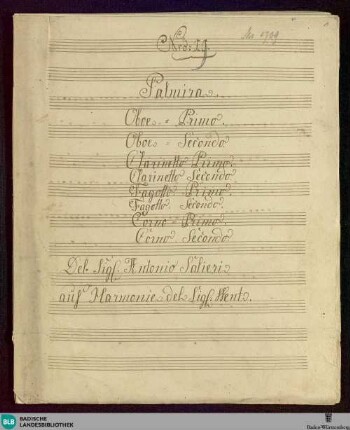 Ms 1709
Palmira.
Oboe Primo
Oboe Secondo
Clarinetto Primo.
Clarinetto Secondo
Fagotto Primo
Fagotto Secondo
Corno Primo
Corno Secondo
Del Sigl. Antonio Salieri
auf Harmonie del Sigl. Went.
BLB
BADISCHE
LANDESBIBLIOTHEK
Baden-Württemberg